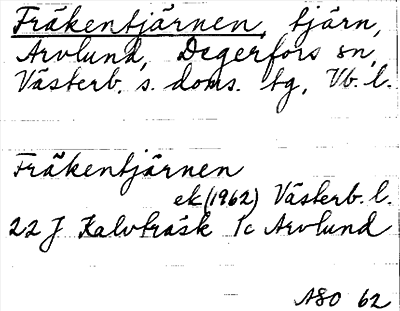 Fräkentjärnen, tjärn,
Arvlund, Degerfors sn,
Västerb. s. doms. tg, Vb. l.
Fräkentjärnen
ek (1962) Västerb. l.
22 J Kalvträsk 1c Arvlund
ASO 62